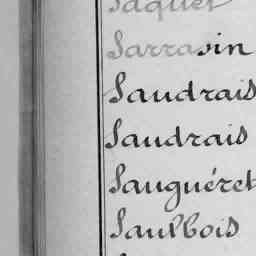 Saquet
Sarrasin
Saudrais
Saudrais
Sauguéret
Saulbois